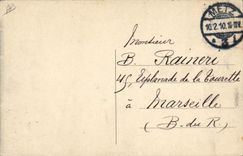 METZ
10.2.10.
Monsieur
B. Raineri
45, Esplanade de la Tourette
à Marseille
(B. du R.)